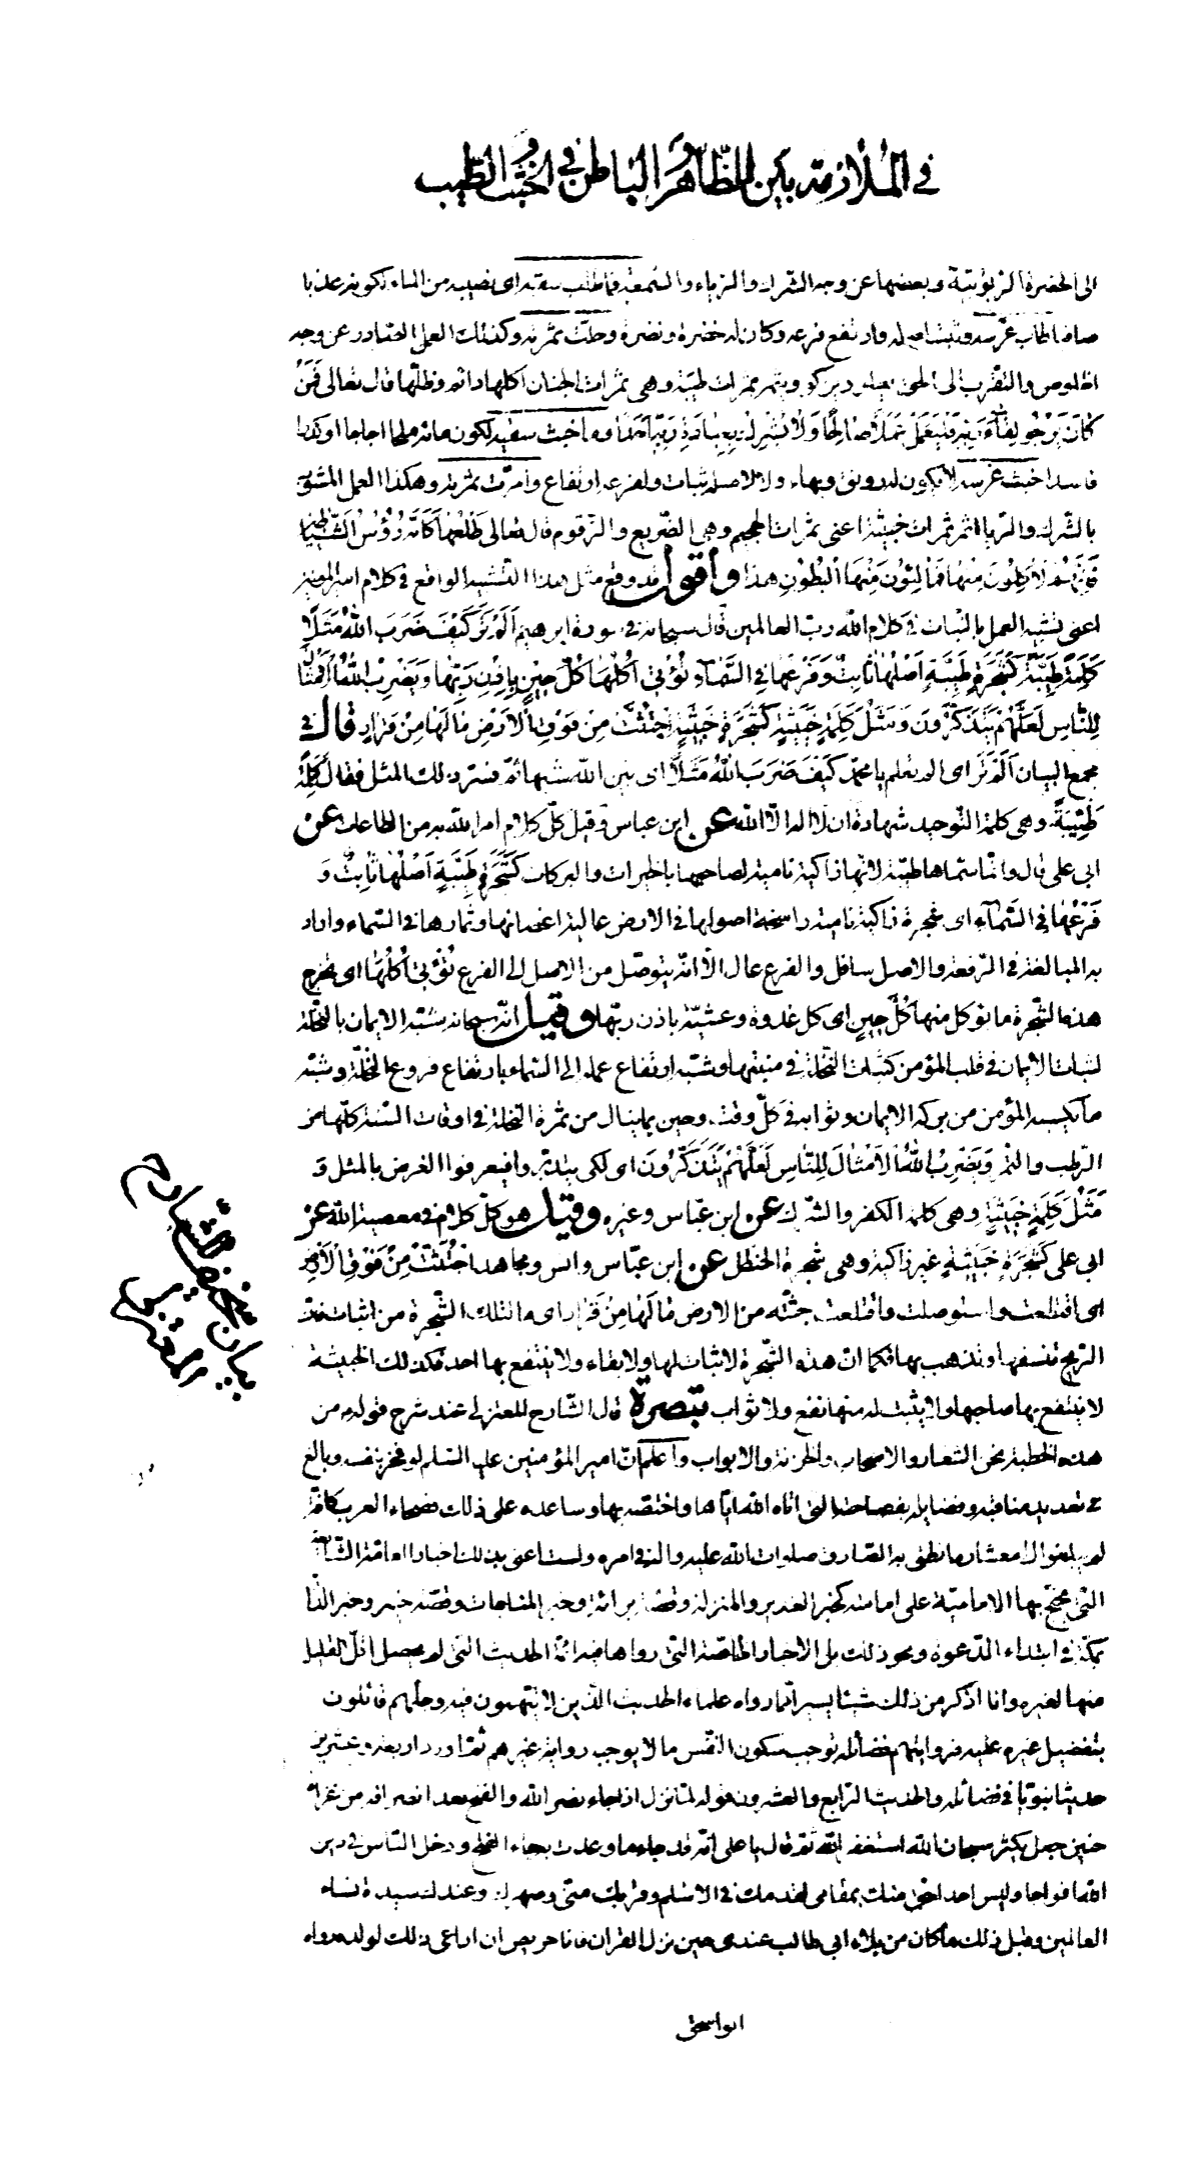 في الملازمة بين الظاهر والباطن في الخبث والطيب
الى الحضرة الربوبية وبعضها عن وجه الشرك والرياء والسمعة فما طاب سقيه اى نصيبه من الماء بكونه عذبا
صافيا طاب غرسه وثبت اصله وارتفع فرعه وكان له خضرة ونضرة وحلت ثمرته وكذلك العمل الصادر عن وجه
الخلوص والتقرب الى الحق يعلو ويزكو ويثمر ثمرات طيبة وهى ثمرات الجنان اكلها دائم وظلها قال تعالى فَمَنْ
كَانَ يَرْجُو لِقَاءَ رَبِّهِ فَلْيَعْمَلْ عَمَلًا صَالِحًا وَلَا يُشْرِكْ بِعِبَادَةِ رَبِّهِ أَحَدًا وما خبث سقيه لكون مائه ملحا اجاجا او كدرا
فاسدا خبث غرسه لا يكون له رونق وبهاء ولا لاصله ثبات ولفرعه ارتفاع وامرّت ثمرته وهكذا العمل المشوّب
بالشرك والريا اثمر ثمرات خبيثة اعنى ثمرات الجحيم وهى الضريع والزقوم قال تعالى طَلْعُهَا كَأَنَّهُ رُؤُسُ الشَّيَاطِينِ
فَإِنَّهُمْ لَآكِلُونَ مِنْهَا فَمَالِئُونَ مِنْهَا الْبُطُونَ هذا واقول قد وقع مثل هذا التشبيه الواقع في كلام امير المؤمنين
اعنى تشبيه العمل بالنبات في كلام الله رب العالمين قال سبحانه في سورة ابرهيم أَلَمْ تَرَ كَيْفَ ضَرَبَ اللهُ مَثَلًا
كَلِمَةً طَيِّبَةً كَشَجَرَةٍ طَيِّبَةٍ أَصْلُهَا ثَابِتٌ وَفَرْعُهَا فِي السَّمَاءِ تُؤْتِي أُكُلَهَا كُلَّ حِينٍ بِإِذْنِ رَبِّهَا وَيَضْرِبُ اللهُ الْأَمْثَالَ
لِلنَّاسِ لَعَلَّهُمْ يَتَذَكَّرُونَ وَمَثَلُ كَلِمَةٍ خَبِيثَةٍ كَشَجَرَةٍ خَبِيثَةٍ اجْتُثَّتْ مِنْ فَوْقِ الْأَرْضِ مَا لَهَا مِنْ قَرَارٍ قال في
مجمع البيان أَلَمْ تَرَ اى الم تعلم يا محمد كَيْفَ ضَرَبَ اللهُ مَثَلًا اى بين الله شبها ثم فسر ذلك المثل فقال كَلِمَةً
طَيِّبَةً وهى كلمة التوحيد شهادة ان لا اله الا الله عن ابن عباس وقيل كل كلام امر الله به من الطاعات عن
ابى على قال وانما سماها طيبة لانها زاكية نامية لصاحبها بالخيرات والبركات كَشَجَرَةٍ طَيِّبَةٍ أَصْلُهَا ثَابِتٌ وَ
فَرْعُهَا فِي السَّمَاءِ اى شجرة زاكية نامية راسخة اصولها في الارض عالية اغصانها وثمارها في السماء واراد
به المبالغة في الرفعة والاصل سافل والفرع عال الا انه يتوصل من الاصل الى الفرع تُؤْتِي أُكُلَهَا اى تخرج
هذه الشجرة ما يؤكل منها كُلَّ حِينٍ اى كل غدوة وعشية باذن ربها وقيل انه سبحانه شبه الايمان بالنخلة
لثبات الايمان في قلب المؤمن كثبات النخلة في منبتها وشبه ارتفاع عمله الى السماء بارتفاع فروع النخلة وشبه
ما يكسبه المؤمن من بركة الايمان وثوابه في كل وقت وحين بما ينال من ثمرة النخلة في اوقات السنة كلها من
الرطب والتمر وَيَضْرِبُ اللهُ الْأَمْثَالَ لِلنَّاسِ لَعَلَّهُمْ يَتَذَكَّرُونَ اى لكى يتدبروا فيعرفوا الغرض بالمثل وَ
مَثَلُ كَلِمَةٍ خَبِيثَةٍ وهى كلمة الكفر والشرك عن ابن عباس وغيره وقيل هو كل كلام في معصية الله عن
ابى على كَشَجَرَةٍ خَبِيثَةٍ غير زاكية وهى شجرة الحنظل عن ابن عباس وانس ومجاهد اجْتُثَّتْ مِنْ فَوْقِ الْأَرْضِ
اى اقتطعت واستوصلت واقتلعت جثته من الارض مَا لَهَا مِنْ قَرَارٍ اى ما لتلك الشجرة من اثبات فان
الريح تنسفها وتذهب بها فكما ان هذه الشجرة لا ثبات لها ولا بقاء ولا ينتفع بها احد فكذلك الخبيثة
لا ينتفع بها صاحبها ولا يثبت له منها نفع ولا ثواب تبصرة قال الشارح المعتزلى عند شرح قوله من
هذه الخطبة نحن الشعار والاصحاب والخزنة والابواب واعلم ان امير المؤمنين عليه السلم لو فخر بنفسه وبالغ
في تعديد مناقبه وفضايله بفصاحته التى اتاه الله اياها واختصه بها وساعده على ذلك فصحاء العرب كافة
لم يبلغوا الى معشار ما نطق به الصادق صلوات الله عليه واله في امره ولست اعنى بذلك اخبار العامة الشايعة
التى يحتج بها الامامية على امامته كخبر الغدير والمنزلة وقصة برائة وخبر المناجات وقصة خيبر وخبر الدار
بمكة في ابتداء الدعوة ونحو ذلك بل الاخبار الخاصة التى رواها فيه ائمة الحديث التى لم يحصل اقل القليل
منها لغيره وانا اذكر من ذلك شيئا يسيرا مما رواه علماء الحديث الذين لا يتهمون فيه وجلهم قائلون
بتفضيل غيره عليه فروايتهم فضائله توجب سكون النفس ما لا يوجب رواية غيرهم ثم اورد اربعة وعشرين
حديثا نبويا في فضائله والحديث الرابع والعشرون قوله لما نزل اذا جاء نصر الله والفتح بعد انصرافه من غزاة
حنين جعل يكثر سبحان الله استغفر الله ثم قال يا على انه قد جاء ما وعدت به جاء الفتح ودخل الناس في دين
الله افواجا وليس احد احق منك بمقامى لقدمك في الاسلم وقربك منى وصهرك وعندك سيدة نساء
العالمين وقبل ذلك ما كان من بلاء ابى طالب عندى حين نزل القران فانا حريص ان اراعى ذلك لولده رواه
ابو اسحق
بيان تحريف الشارح
المعتزلى